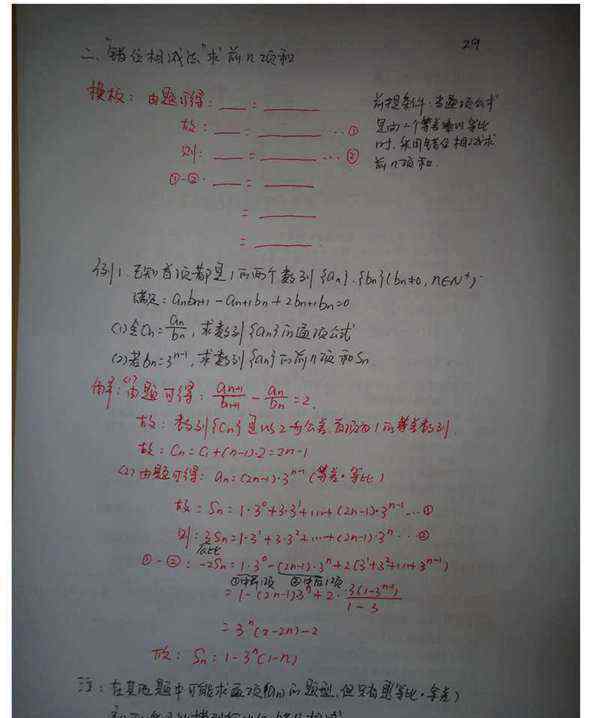 29
二、"错位相减法"求前n项和
模板: 由题可得: __ = ____
故: __ = ____ … ①
则: __ = ____ … ②
①-②: __ = ____
= ____
= ____
前提条件: 当通项公式
是由一个等差乘以等比
时, 采用错位相减求
前n项和.
例1. 已知首项都是1的两个数列{an}.{bn}(bn≠0, n∈N*)
满足: anbn+1 - an+1bn + 2bn+1bn=0
(1)令Cn=an/bn, 求数列{Cn}的通项公式
(2)若bn=3^(n-1), 求数列{an}的前n项和Sn.
解: (1)由题可得: an+1/bn+1 - an/bn = 2,
故: 数列{Cn}是以2为公差, 首项为1的等差数列.
故: Cn=C1+(n-1)·2=2n-1
(2)由题可得: an=(2n-1)·3^(n-1) (等差·等比)
故: Sn=1·3^0+3·3^1+…+(2n-1)·3^(n-1) …①
则: 3Sn=1·3^1+3·3^2+…+(2n-1)·3^n …②
公比
①-②: -2Sn=1·3^0-(2n-1)·3^n+2(3^1+3^2+…+3^(n-1))
= 1-(2n-1)3^n+2· 3(1-3^(n-1))/(1-3)
= 3^n(2-2n)-2
故: Sn=1-3^n(1-n)
注: 在其他题中可能求通项{an}的题型, 但只有是(等比·等差)